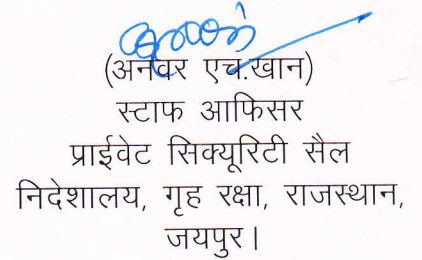 (अनवर एच.खान)
स्टाफ आफिसर
प्राईवेट सिक्यूरिटी सैल
निदेशालय, गृह रक्षा, राजस्थान,
जयपुर।